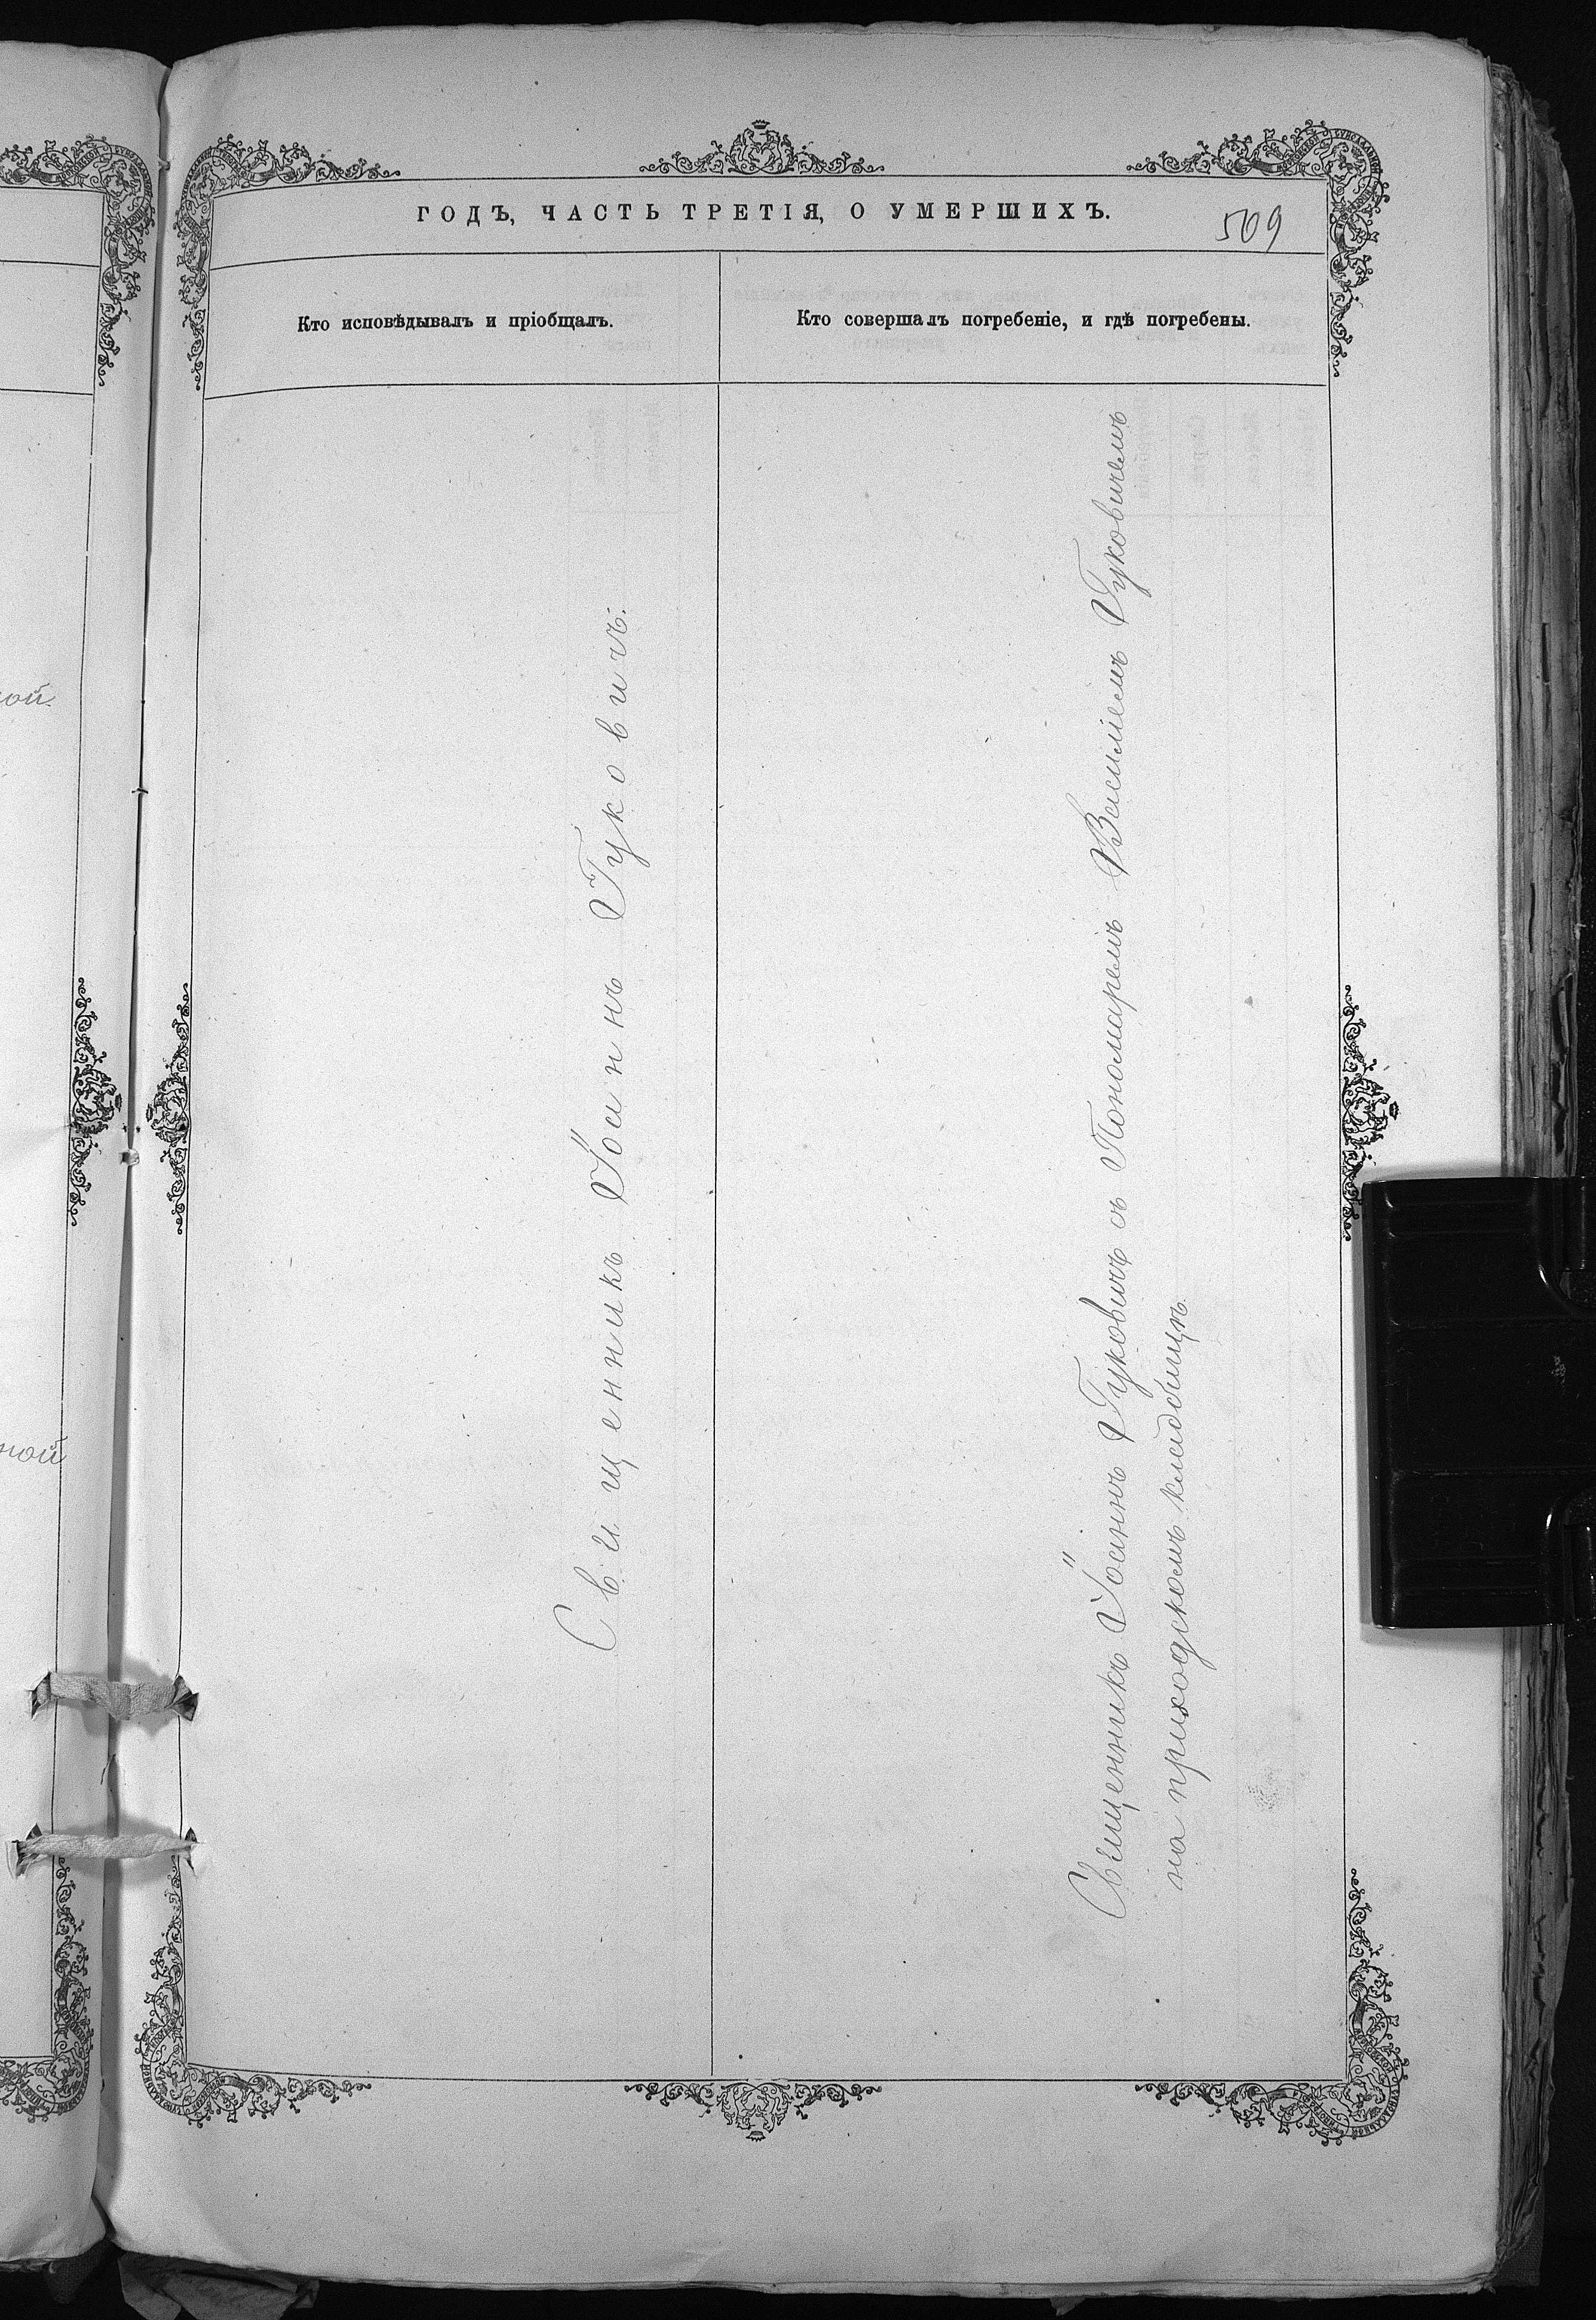 ГОДЪ, ЧАСТЬ ТРЕТІЯ, О УМЕРШИХЪ.
509
Кто исповѣдывалъ и пріобщалъ.
Кто совершалъ погребеніе, и гдѣ погребены.
Священникъ Іоаннъ Гуковичъ.
Священникъ Іоаннъ Гуковичъ съ Пономаремъ Василіемъ Гуковичемъ
на приходскомъ кладбищѣ
ной